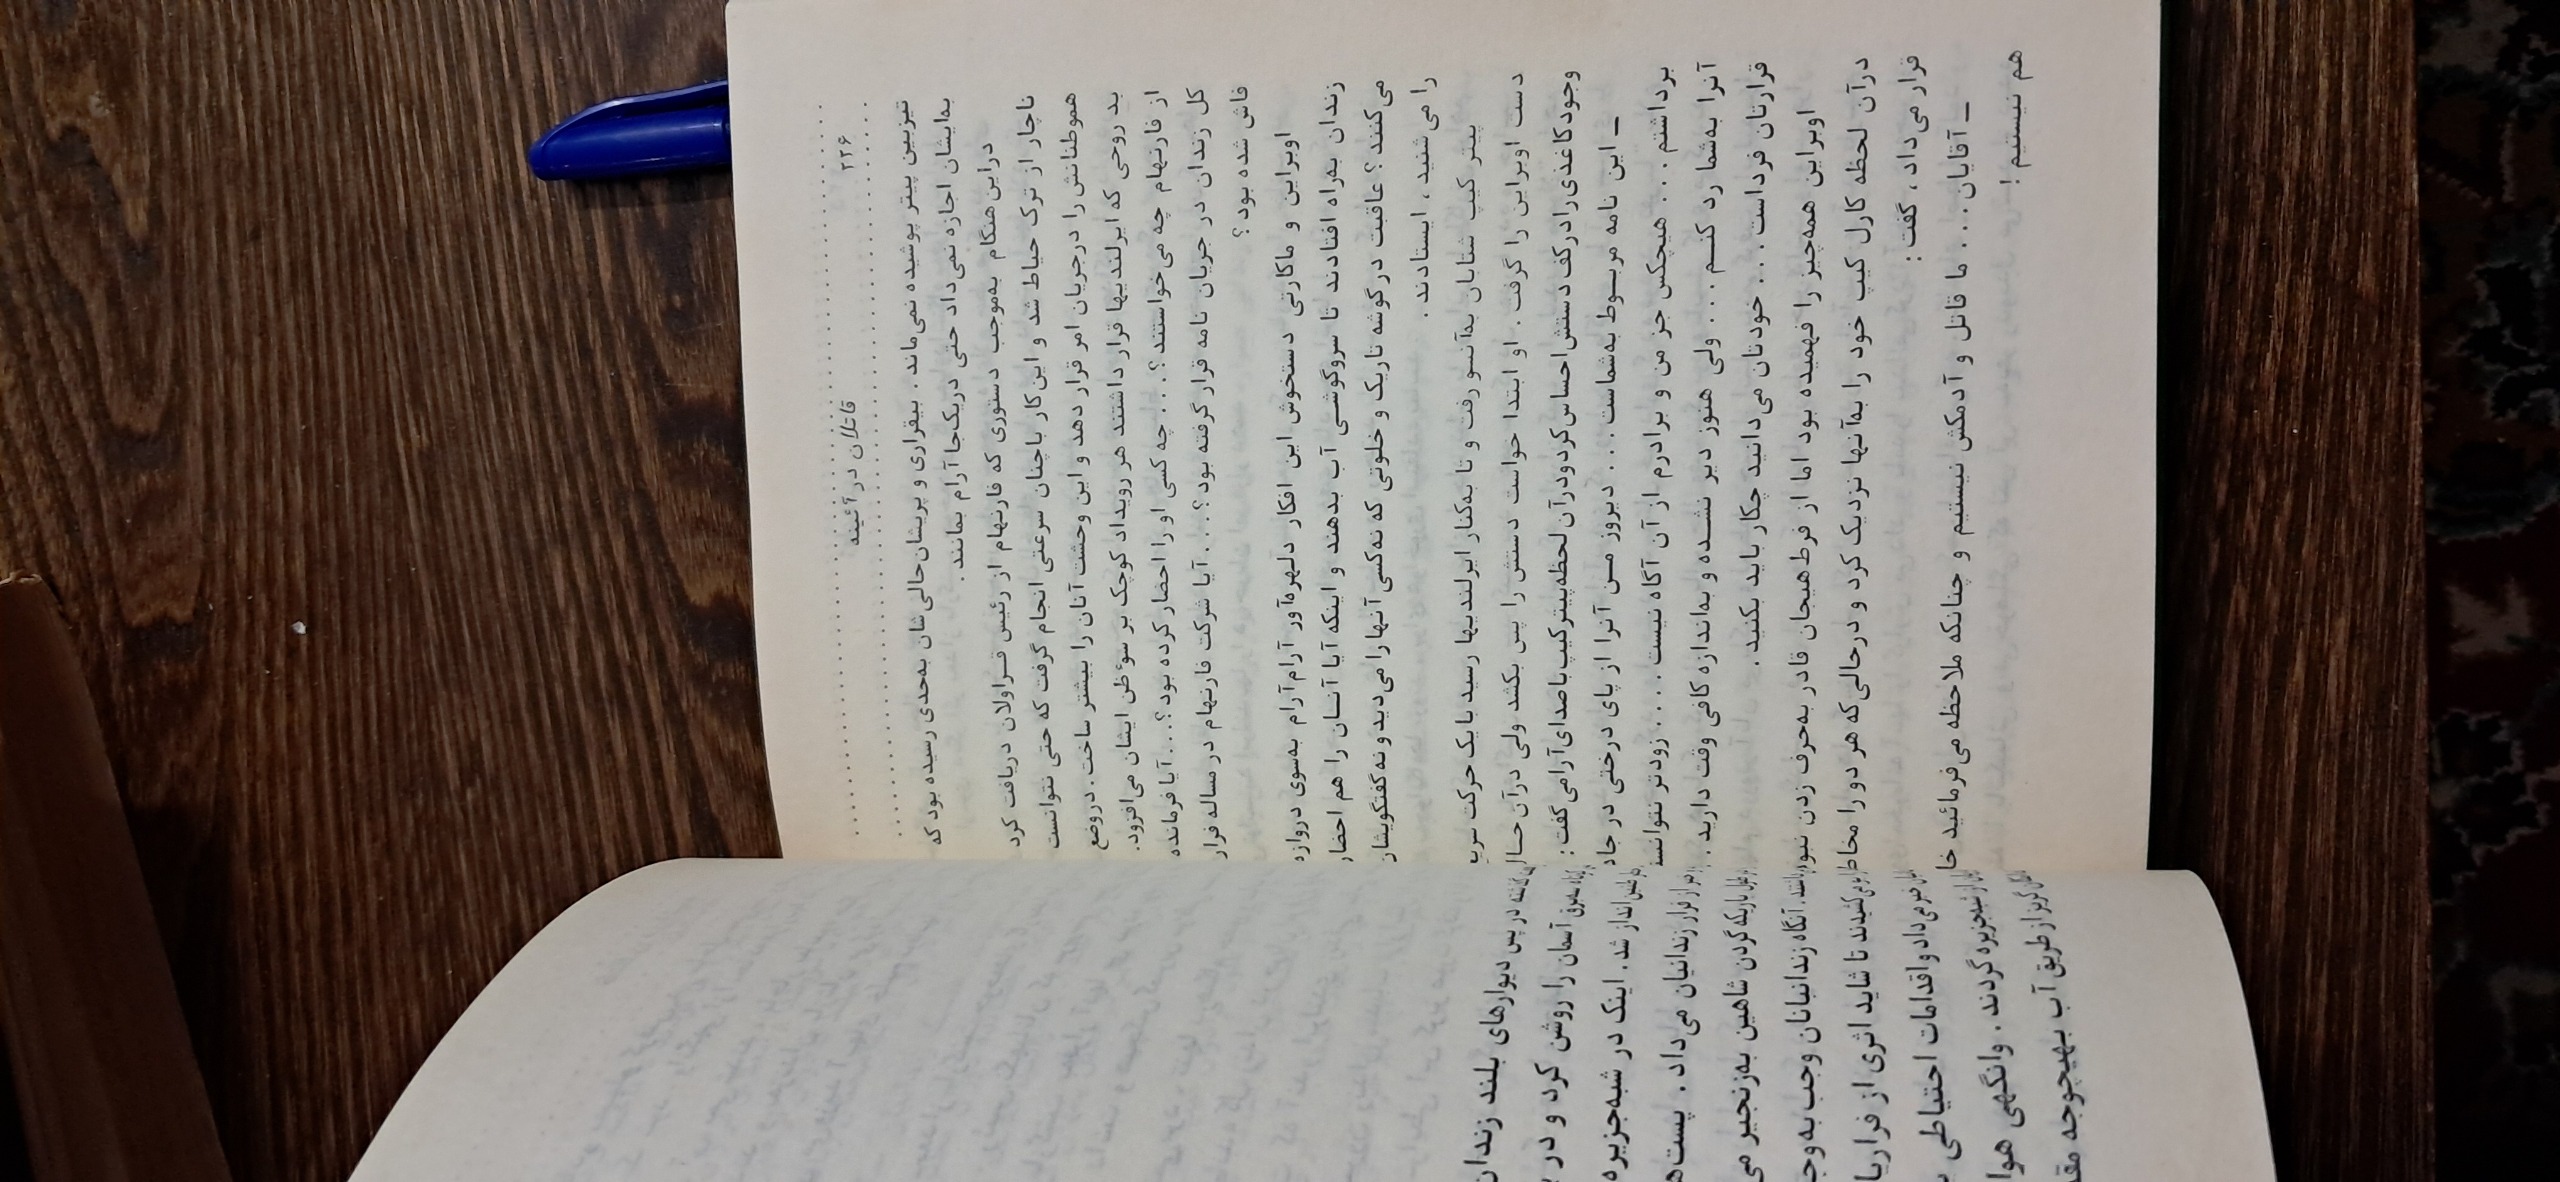 ۲۲۶ قاتلان در آئینه
تیزبین پیتر پوشیده نمی‌ماند . بیقراری و پریشان‌حالی شان به‌حدی رسیده بود که
به‌ایشان اجازه نمی‌داد حتی دریک‌جا آرام بمانند .
دراین هنگام به‌موجب دستوری که فارنهام از رئیس قراولان دریافت کرد
ناچار از ترک حیاط شد و این‌کار باچنان سرعتی انجام گرفت که حتی نتوانست
هموطنانش را درجریان امر قرار دهد و این وحشت آنان را بیشتر ساخت . دروضع
بد روحی که ایرلندیها قرار داشتند هر رویداد کوچک بر سوءظن ایشان می‌افزود.
از فارنهام چه می‌خواستند ؟ . . . چه کسی او را احضار کرده بود؟. . . آیا فرمانده
کل زندان در جریان نامه قرار گرفته بود؟ . . . آیا شرکت فارنهام در مساله فرار
فاش شده بود ؟
اوبراین و ماکارتی دستخوش این افکار دلهره‌آور آرام‌آرام به‌سوی دروازه
زندان به‌راه افتادند تا سروگوشی آب بدهند و اینکه آیا آنسان را هم احضار
می‌کنند ؟ عاقبت درگوشه تاریک و خلوتی که نه‌کسی آنها را می‌دید و نه گفتگویشان
را می‌شنید ، ایستادند .
پیتر کیپ شتابان به‌آنسو رفت و تا به‌کنار ایرلندیها رسید با یک حرکت
دست اوبراین را گرفت . او ابتدا خواست دستش را پس بکشد ولی درآن حال
وجودکاغذی را درکف دستش احساس کرد و درآن لحظه پیتر کیپ باصدای آرامی گفت:
ـ این نامه مربوط به‌شماست . . . دیروز من آنرا از پای درختی در
برداشتم . . . هیچکس جز من و برادرم از آن آگاه نیست . . . زودتر
آنرا به‌شما رد کنم . . . ولی هنوز دیر نشده و به‌اندازه کافی وقت دارید . .
قرارتان فرداست . . . خودتان می‌دانید چکار باید بکنید .
اوبراین همه‌چیز را فهمیده بود اما از فرط هیجان قادر به‌حرف زدن
درآن لحظه کارل کیپ خود را به‌آنها نزدیک کرد و درحالی‌که هر دو را
قرار می‌داد ، گفت :
ـ آقایان . . . ما قاتل و آدمکش نیستیم و چنانکه ملاحظه می‌فرمائید
هم نیستیم !
دیوارهای بلند زندان
آسمان را روشن کرد و در
شد . اینک در شبه‌جزیره
زندانیان می‌داد . پست‌ه
کردن شاهین به‌زنجیر می
آنگاه زندانبانان وجب به‌وج
تا شاید اثری از فراریا
و اقدامات احتیاطی
گردند . وانگهی هوا
گریز از طریق آب بهیچوجه مقد